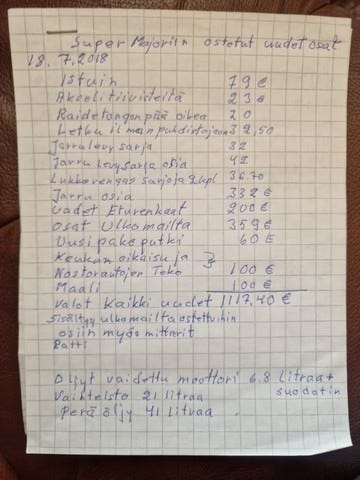 Super Majoriin ostetut uudet osat
18.7.2018
Istuin 79 €
Akselitiivisteitä 23 €
Raidetangon pää oikea 20
Letku ilmanpuhdistajaan 32,50
Jarrulevysarja 32
Jarru levysarja osia 42
Lukkorengas sarjoja 2kpl 36.70
Jarru osia 332 €
uudet Eturenkaat 200 €
Osat Ulkomailta 359 €
Uusi pakoputki 60 €
Keukan oikaisu ja
Nostorautojen Teko 100 €
Maali 100 €
Valot kaikki uudet 1117,40 €
Sisältyy ulkomailta ostettuihin
osiin myös mittarit
Patti
Öljyt vaidettu moottori 6.8 Litraa +
suodatin
Vaihteisto 21 litraa
Perä öljy 41 litraa